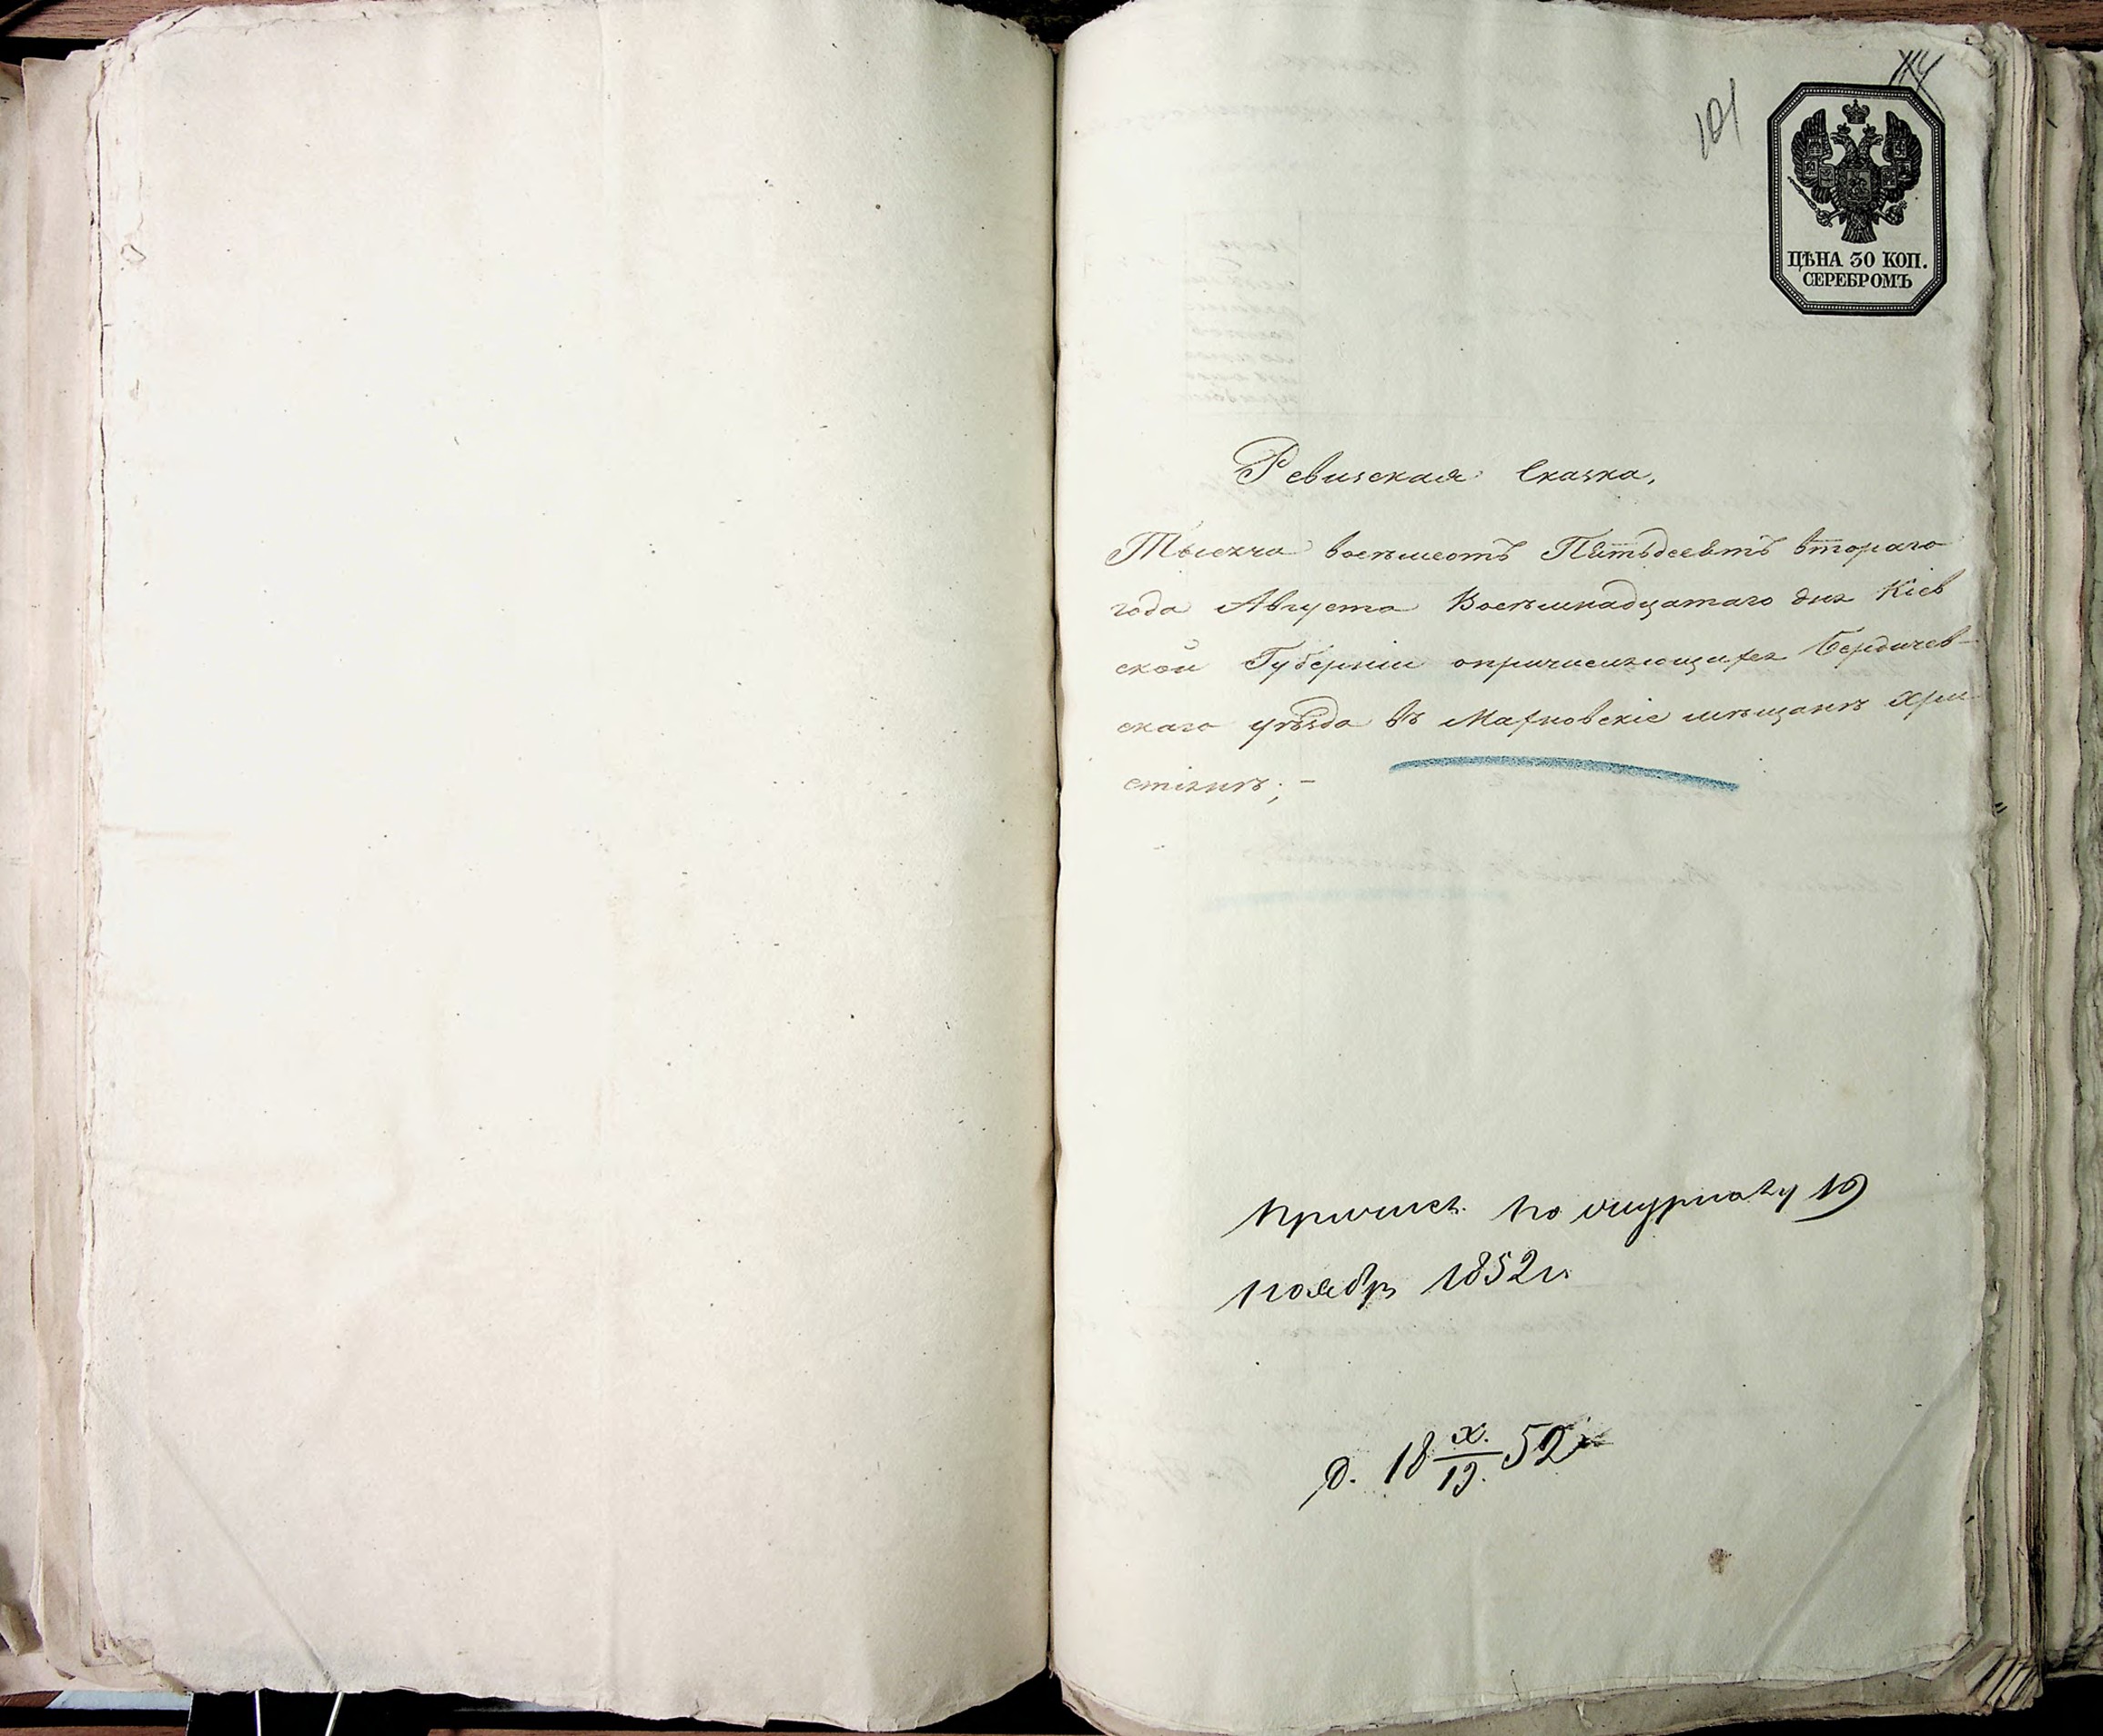 101
ЦѢНА 30 КОП.
СЕРЕБРОМЪ
Ревизская Сказка,
Тысяча восемьсотъ Пятьдесятъ втораго
года Августа Восемнадцатаго дня Кіев
ской Губерніи опричисляющихся Бердичев-
скаго уѣзда въ Махновскіе мѣщанъ Хри
стіянъ; –
Причисл. по журналу 19
ноября 1852 г.
18 X. 19. 52